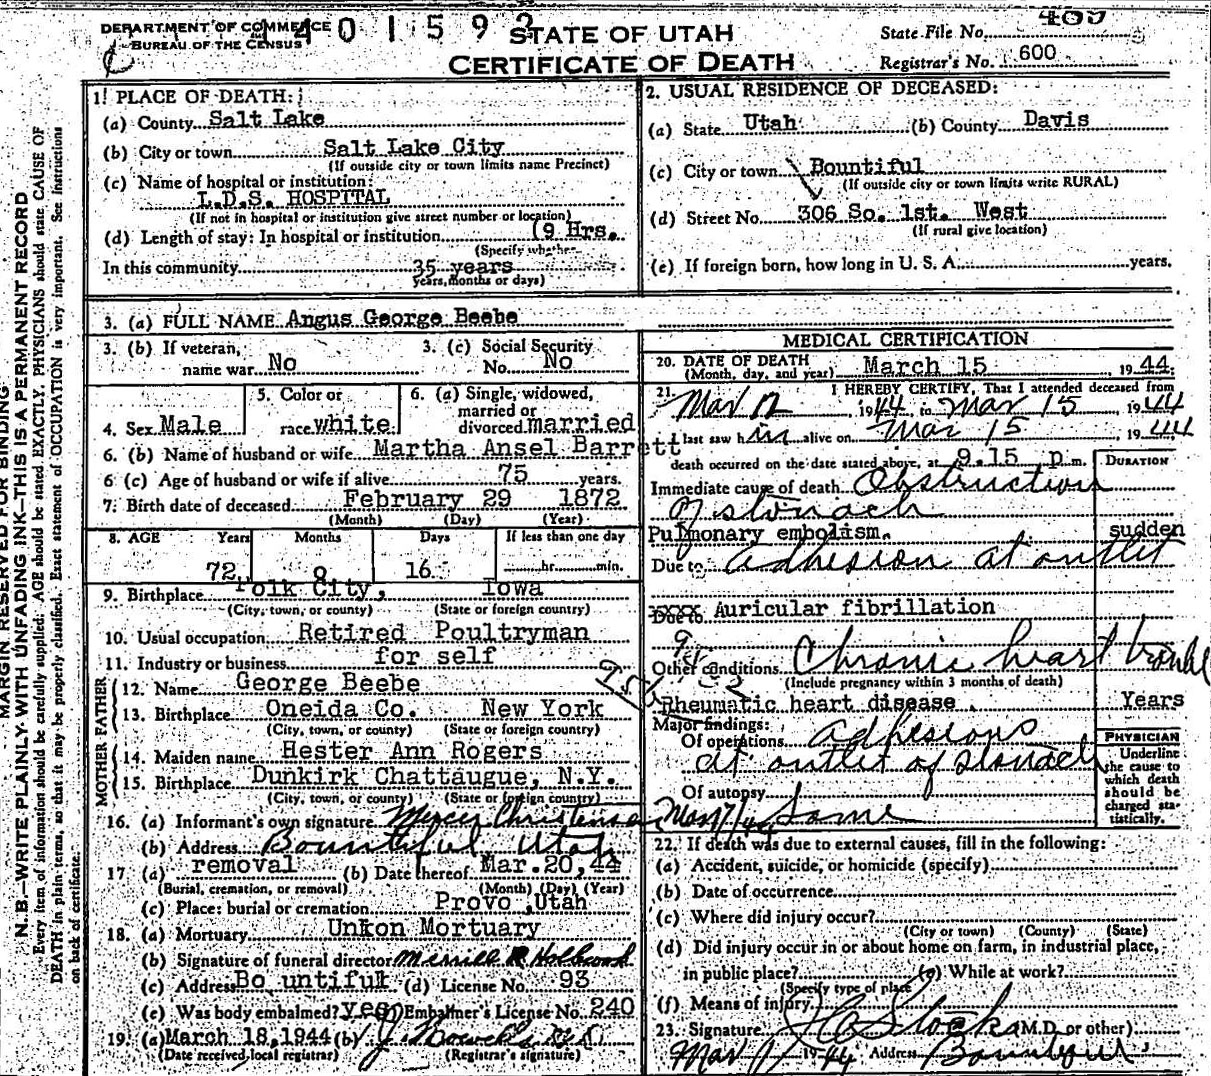 DEPARTMENT OF COMMERCE
BUREAU OF THE CENSUS
401593
STATE OF UTAH
CERTIFICATE OF DEATH
State File No. 409
Registrar's No. 600
MARGIN RESERVED FOR BINDING
N.B.—WRITE PLAINLY, WITH UNFADING INK—THIS IS A PERMANENT RECORD
Every item of information should be carefully supplied. AGE should be stated EXACTLY. PHYSICIANS should state CAUSE OF
DEATH in plain terms, so that it may be properly classified. Exact statement of OCCUPATION is very important. See instructions
on back of certificate.
1. PLACE OF DEATH:
(a) County Salt Lake
(b) City or town Salt Lake City
(If outside city or town limits name Precinct)
(c) Name of hospital or institution:
L.D.S. HOSPITAL
(If not in hospital or institution give street number or location)
(d) Length of stay: In hospital or institution (9 Hrs.
(Specify whether
In this community 35 years
years, months or days)
2. USUAL RESIDENCE OF DECEASED:
(a) State Utah (b) County Davis
(c) City or town Bountiful
(If outside city or town limits write RURAL)
(d) Street No. 306 So. 1st. West
(If rural give location)
(e) If foreign born, how long in U. S. A. years.
3. (a) FULL NAME Angus George Beebe
3. (b) If veteran, name war No
3. (c) Social Security No. No
4. Sex Male
5. Color or race white
6. (a) Single, widowed, married or divorced married
6. (b) Name of husband or wife Martha Ansel Barrett
6 (c) Age of husband or wife if alive 75 years.
7. Birth date of deceased February 29 1872
(Month) (Day) (Year)
8. AGE Years Months Days If less than one day
72 0 16 hr. min.
9. Birthplace Polk City, Iowa
(City, town, or county) (State or foreign country)
10. Usual occupation Retired Poultryman
11. Industry or business for self
FATHER
12. Name George Beebe
13. Birthplace Oneida Co. New York
(City, town, or county) (State or foreign country)
MOTHER
14. Maiden name Hester Ann Rogers
15. Birthplace Dunkirk Chattaugue, N.Y.
(City, town, or county) (State or foreign country)
16. (a) Informant's own signature Mercer Christensen
(b) Address Bountiful Utah
17 (a) removal (b) Date thereof Mar.20,44
(Burial, cremation, or removal) (Month) (Day) (Year)
(c) Place: burial or cremation Provo, Utah
18. (a) Mortuary Union Mortuary
(b) Signature of funeral director Merrill R Holbrook
(c) Address Bo untiful (d) License No. 93
(e) Was body embalmed? yes (f) Embalmer's License No. 240
19. (a) March 18, 1944 (b)
(Date received local registrar) (Registrar's signature)
MEDICAL CERTIFICATION
20. DATE OF DEATH March 15 1944.
(Month, day, and year)
21. I HEREBY CERTIFY, That I attended deceased from
Mar 12, 1944, to Mar 15, 1944
I last saw him alive on Mar 15 1944
death occurred on the date stated above, at 9.15 p m.
DURATION
Immediate cause of death Obstruction
of stomach
Pulmonary embolism. sudden
Due to adhesion at outlet
Due to Auricular fibrillation
Other conditions Chronic heart trouble
(Include pregnancy within 3 months of death)
Rheumatic heart disease. Years
Major findings:
Of operations adhesions
at outlet of stomach
Of autopsy Same
PHYSICIAN
Underline the cause to which death should be charged statistically.
22. If death was due to external causes, fill in the following:
(a) Accident, suicide, or homicide (specify)
(b) Date of occurrence
(c) Where did injury occur?
(City or town) (County) (State)
(d) Did injury occur in or about home on farm, in industrial place,
in public place? (e) While at work?
(Specify type of place)
(f) Means of injury
23. Signature Stocks (M.D. or other)
Mar 17 1944 Address Bountiful